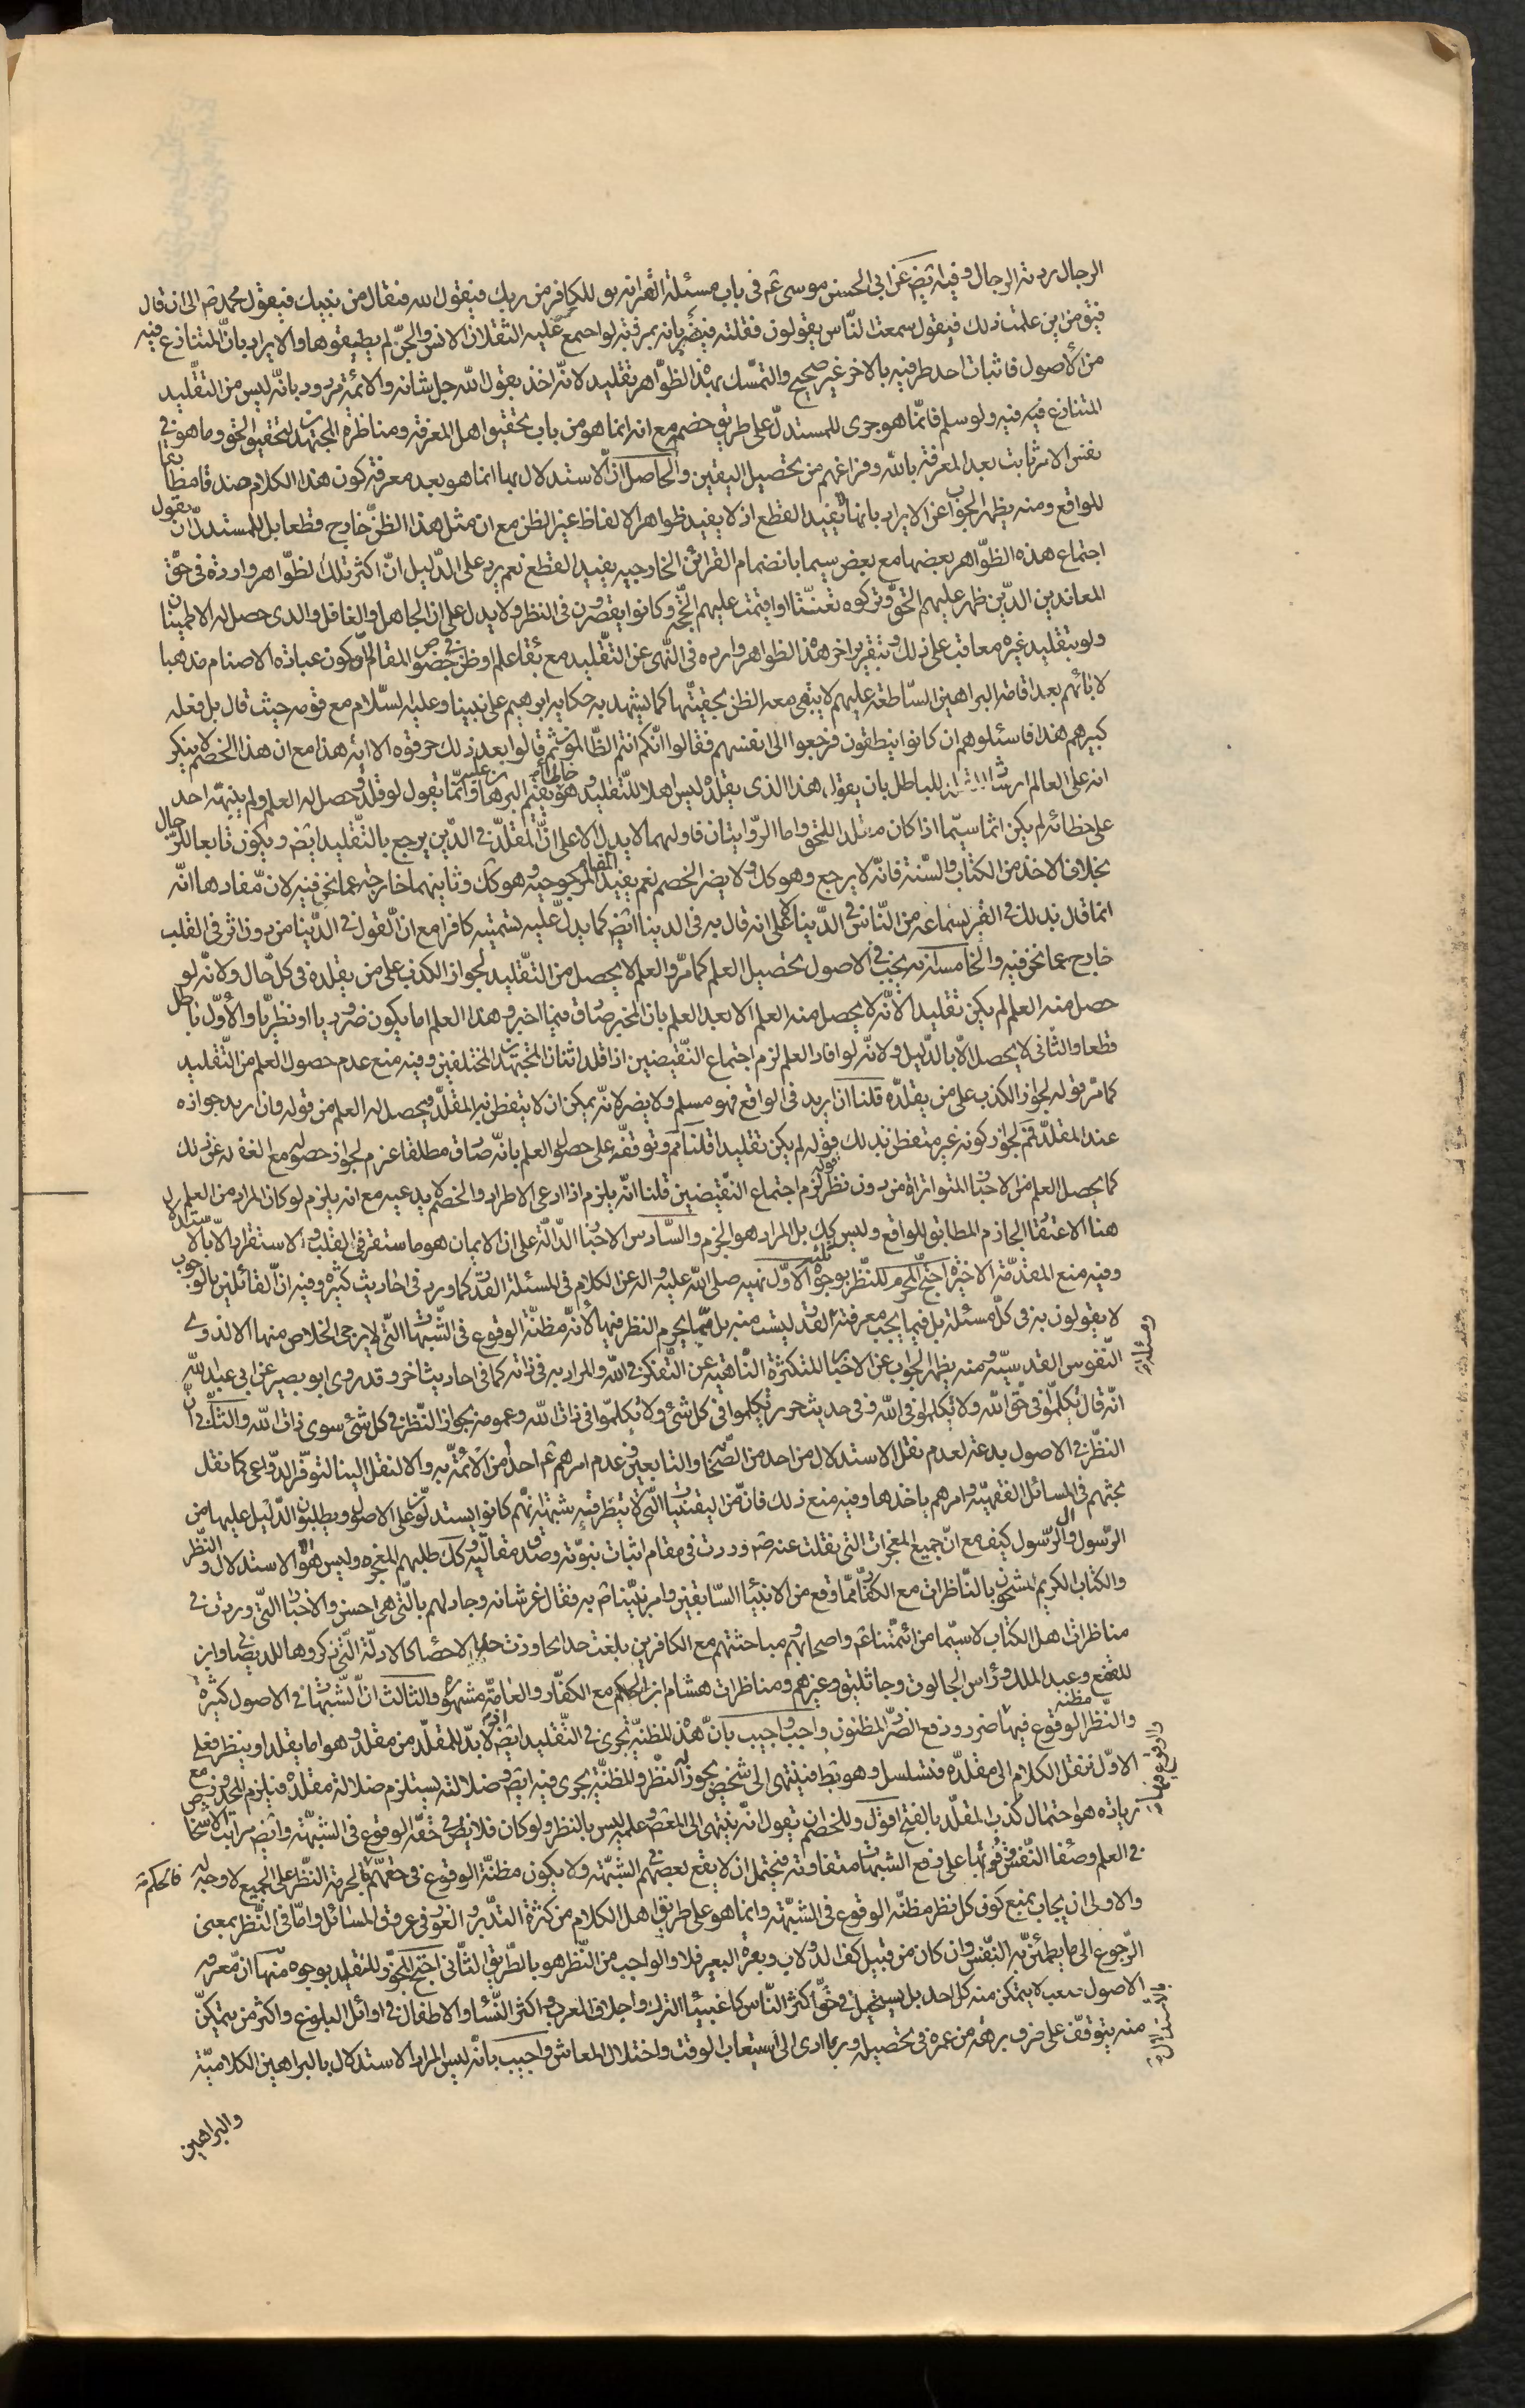 الرجال ردته الرجال وفيه ايض عن ابى الحسن موسى ع فى باب مسئلة القبر انه يق للكافر من ربك فيقول الله فيقال من نبيك فيقول محمد ص الى ان قال
فيق من اين علمت ذلك فيقول سمعت الناس يقولون فقلته فيضربانه بمرزبة لو اجتمع عليه الثقلان الانس والجن لم يطيقوها والايراد بان المتنازع فيه
من الأصول فاثبات احد طرفيه بالاخر غير صحيح والتمسك بهذه الظواهر تقليد لانه اخذ بقول الله جل شانه والائمة مردود بانه ليس من التقليد
المتنازع فيه ولو سلم فانما هو جرى للمستدل على طريق خصمه مع انه انما هو من باب تحقيق اهل المعرفة ومناظرة المجتهدين لتحقيق الحق وما هو فى
نفس الامر ثابت بعد المعرفة بالله وفراغهم من تحصيل اليقين والحاصل ان الاستدلال بها انما هو بعد معرفة كون هذا الكلام صدقا مطابقا
للواقع ومنه يظهر الجواب عن الايراد بانها لا تفيد القطع اذ لا يفيد ظواهر الالفاظ غير الظن مع ان مثل هذا الظن خارج قطعا بل للمستدل ان يقول
اجتماع هذه الظواهر بعضها مع بعض سيما بانضمام القرائن الخارجيه يفيد القطع نعم يرد على الدليل ان اكثر تلك الظواهر واردة فى حق
المعاندين الذين ظهر عليهم الحق وتركوه تعنتا او اقيمت عليهم الحجة وكانوا يقصرون فى النظر ولا يدل على ان الجاهل والغافل والذى حصل له الاطمينان
ولو بتقليد غيره معاقب على ذلك وبتقرير اخر هذه الظواهر واردة فى النهى عن التقليد مع بقاء علم او ظن فى خصوص المقام او كون عبادة الاصنام مذهبا
لابائهم بعد اقامة البراهين الساطعة عليهم لا يبقى معه الظن بحقيتها كما يشهد به حكاية ابراهيم على نبينا وعليه السلام مع قومه حيث قال بل فعله
كبيرهم هذا فاسئلوهم ان كانوا ينطقون فرجعوا الى انفسهم فقالوا انكم انتم الظالمون ثم قالوا بعد ذلك حرقوه الاية هذا مع ان هذا الخصم لا ينكر
انه على العالم ارشاد للباطل بان يقول هذا الذى يقلده ليس اهلا للتقليد وهو يقيم البرهان عليه وانما يقول لو قلد وحصل له العلم ولم ينبهه احد
على خطائه لم يكن اثما سيما اذا كان مقلدا للحق واما الروايتان فاولهما لا يدل الا على ان المقلد فى الدين يرجع بالتقليد ايض ويكون تابعا للرجال
بخلاف الاخذ من الكتاب والسنة فانه لا يرجع وهو كك ولا يضر الخصم نعم يفيد المقام المرجوحية وهو كك وثانيهما خارجة عما نحن فيه لان مفادها انه
انما قال بذلك فى القبر لسماعه من الناس فى الدنيا لا على انه قال به فى الدنيا ايض كما يدل عليه تسميته كافرا مع ان القول فى الدنيا من دون اثر فى القلب
خارج عما نحن فيه والخامس انه يجب فى الاصول تحصيل العلم كما مر والعلم لا يحصل من التقليد لجواز الكذب على من يقلده فى كل حال ولانه لو
حصل منه العلم لم يكن تقليدا لانه لا يحصل منه العلم الا بعد العلم بان المخبر صادق فيما اخبر وهذا العلم اما يكون ضروريا او نظريا والأول باطل
قطعا والثانى لا يحصل الا بالدليل ولانه لو افاد العلم لزم اجتماع النقيضين اذا قلد اثنان المجتهدين المختلفين وفيه منع عدم حصول العلم من التقليد
كما مر قوله لجواز الكذب على من يقلده قلنا ان اريد فى الواقع فهو مسلم ولا يضر لانه يمكن ان لا يتفطن به المقلد فيحصل له العلم من قوله وان اريد جوازه
عند المقلد فمم لجواز كونه غير متفطن بذلك قوله لم يكن تقليدا قلنا مم وتوقفه على حصول العلم بانه صادق مطلقا غير م لجواز حصوله مع الغفلة عن ذلك
كما يحصل العلم من الاخبار المتواترة من دون نظر قوله لزم اجتماع النقيضين قلنا انه يلزم اذا ادعى الاطراد والخصم لا يدعيه مع انه يلزم لو كان المراد من العلم
هنا الاعتقاد الجازم المطابق للواقع وليس كك بل المراد هو الجزم والسادس الاخبار الدالة على ان الايمان هو ما استقر فى القلب ولا استقرار الا بالاستدلال
وفيه منع المقدمة الاخيرة احتج المحرم للنظر بوجوه ثلثة الاول نهيه صلى الله عليه واله عن الكلام فى المسئلة القدر كما ورد فى احاديث كثيرة وفيه ان القائلين بالوجوب
لا يقولون به فى كل مسئلة بل فيما يجب معرفته ومسئلة القدر ليست منه بل مما يحرم النظر فيها لأنه مظنة الوقوع فى الشبهات التى لا يرجى الخلاص منها الا لذوى
النفوس القدسيه ومنه يظهر الجواب عن الاخبار المتكثرة الناهية عن التفكر فى الله والمراد به فى ذاته كما فى احاديث اخر وقد روى ابو بصير عن ابى عبد الله
انه قال تكلموا فى خلق الله ولا تكلموا فى الله وفى حديث حريز تكلموا فى كل شئ ولا تكلموا فى ذات الله وعمومه بجواز النظر فى كل شئ سوى ذات الله والثانى ان
النظر فى الاصول بدعة لعدم نقل الاستدلال من احد من الصحابة والتابعين وعدم امرهم ع احدا من الأئمة به والا لنقل الينا لتوفر الدواعى كما نقل
بحثهم فى المسائل الفقهية وامرهم باخذها وفيه منع ذلك فانه من اليقينيات التى لا يتطرقه شبهة انهم كانوا يستدلون على الاصول ويطلبون الدليل عليها من
الرسول وال الرسول كيف مع ان جميع المعجزات التى نقلت عنه ص وردت فى مقام اثبات نبوته وصدق مقالته وكك طلبهم المعجزه وليس هو الا الاستدلال والنظر
والكتاب الكريم مشحون بالمناظرات مع الكفار مما وقع من الانبياء السابقين وامر نبينا ص به فقال عز شانه وجادلهم بالتى هى احسن والاخبار التى وردت فى
مناظرات اهل الكتاب لا سيما من ائمتنا ع واصحابهم ومباحثتهم مع الكافرين بلغت حدا تجاوزت حد الاحصاء كالادلة التى ذكروها للديصانى وابن
المقفع وعبد الملك ورأس الجالوت وجاثليق وغيرهم ومناظرات هشام ابن الحكم مع الكفار والعامة مشهورة والثالث ان الشبهات فى الاصول كثيرة
والنظر مظنة الوقوع فيها ضرر ودفع الضرر المظنون واجب واجيب بان هذه المظنة تجرى فى التقليد ايض اذ لا بد للمقلد من مقلد وهو اما يقلد او ينظر فعلى
الاول ننقل الكلام الى مقلده فتسلسل وهو بط فينتهى الى شخص يجوز له النظر والمظنة يجرى فيه ايض وضلالته يستلزم ضلالة مقلده فيلزم المحذور مع
زيادة هو احتمال كذب المقلد بالفتح اقول وللخصم ان يقول انه ينتهى الى المعصوم وعلمه ليس بالنظر ولو كان فلا يظن فى حقه الوقوع فى الشبهة وايض مراتب الاشخاص
فى العلم وصفاء النفس وقوتها على دفع الشبهات متفاوتة فيحتمل ان لا يقع بعضهم فى الشبهة ولا يكون مظنة الوقوع فى حقهم فالحكم بحرمة النظر على الجميع لا وجه له
والاولى ان يجاب بمنع كون كل نظر مظنة الوقوع فى الشبهة وانما هو على طريق اهل الكلام من كثرة التدبر والغور فى عروق المسائل واما فى النظر بمعنى
الرجوع الى ما يطمئن به النفس وان كان من قبيل كف الدولاب وبعرة البعير فلا والواجب من النظر هو بالطريق الثانى احتج المجوز للتقليد بوجوه منها ان معرفة
الاصول بالاستدلال صعب لا يتمكن منه كل احد بل يستحيل فى حق اكثر الناس كاغبياء الترك واجلاف العرب واكثر النساء والاطفال فى اوائل البلوغ واكثر من يتمكن
منه يتوقف على صرف برهة من عمره فى تحصيله وربما ادى الى استيعاب الوقت واختلال المعاش واجيب بانه ليس المراد الاستدلال بالبراهين الكلامية
والبراهين